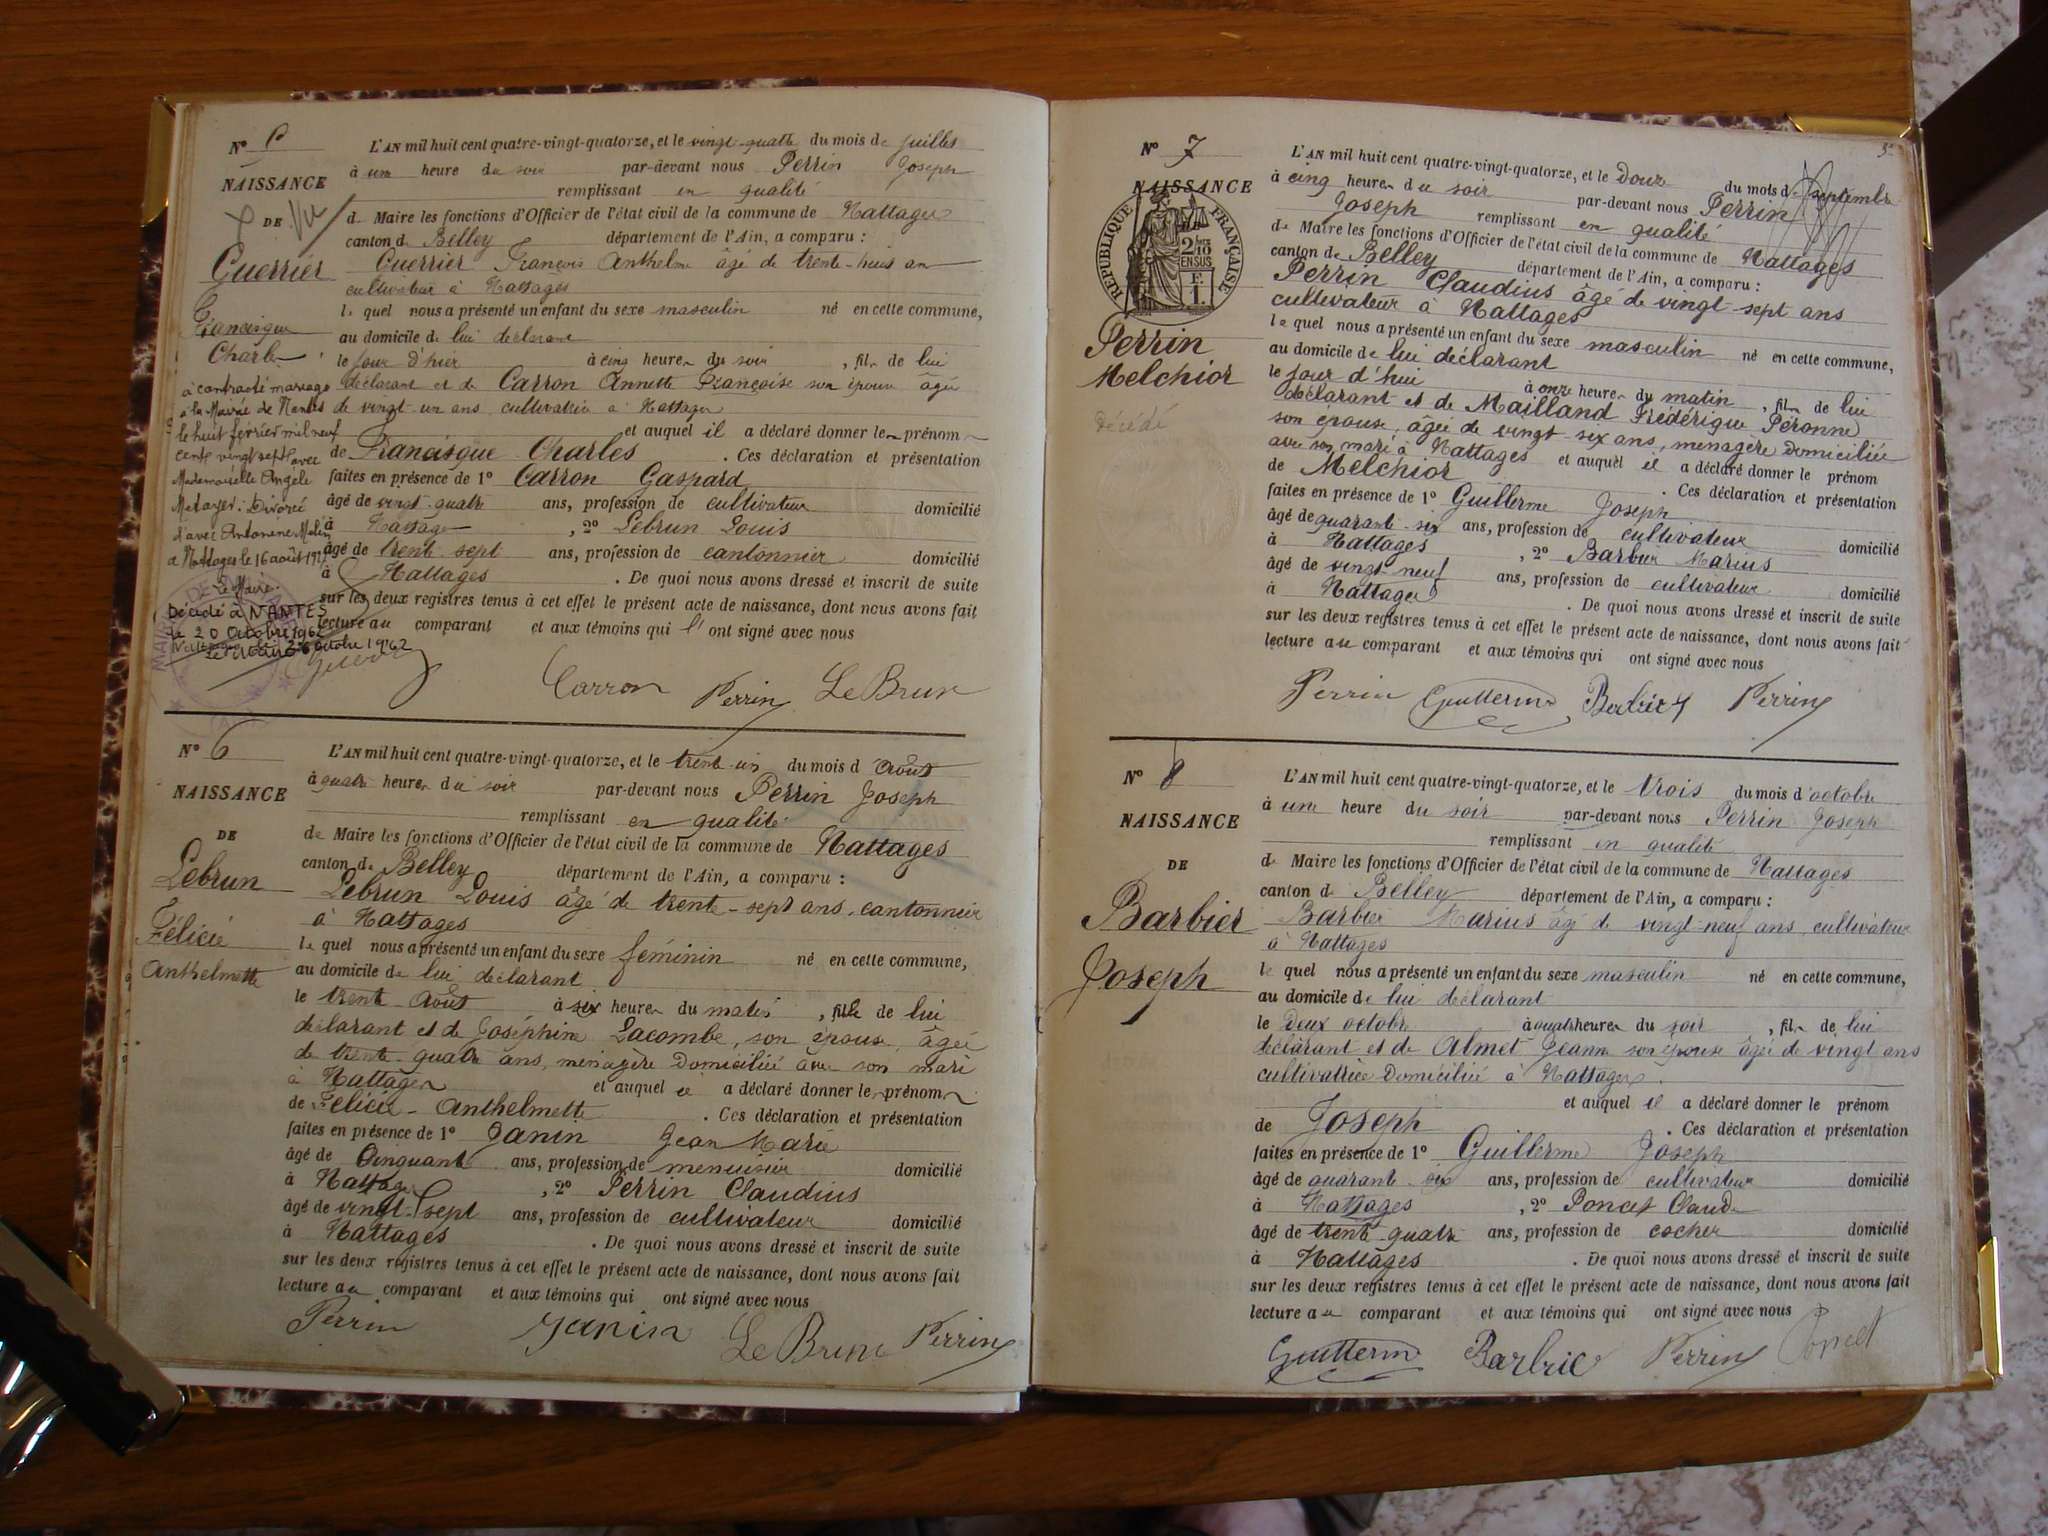 N° 5
NAISSANCE
DE
Guerrier
Francisque
Charles
L'AN mil huit cent quatre-vingt-quatorze, et le vingt-quatre du mois de juillet
à une heure du soir par-devant nous Perrin Joseph
remplissant en qualité
de Maire les fonctions d'Officier de l'état civil de la commune de Nattages
canton de Belley département de l'Ain, a comparu :
Guerrier François Anthelme âgé de trente-huit an
cultivateur à Nattages
le quel nous a présenté un enfant du sexe masculin né en cette commune,
au domicile de lui déclarant
le jour d'hier à cinq heures du soir , fils de lui
déclarant et de Carron Annette Françoise son épouse âgée
de vingt-un ans cultivatrice à Nattages
et auquel il a déclaré donner les prénoms
de Francisque Charles . Ces déclaration et présentation
faites en présence de 1° Carron Gaspard
âgé de vingt-quatre ans, profession de cultivateur domicilié
à Nattages , 2° Lebrun Louis
âgé de trente-sept ans, profession de cantonnier domicilié
à Nattages . De quoi nous avons dressé et inscrit de suite
sur les deux registres tenus à cet effet le présent acte de naissance, dont nous avons fait
lecture au comparant et aux témoins qui l'ont signé avec nous
Carron Perrin LeBrun
à contracté mariage
à la Mairie de Nantes
le huit février mil neuf
cent vingt sept avec
Mademoiselle Angèle
Metayer. Divorcé
d'avec Antonine Melin
a Nattages le 16 août 19
Le Maire.
Décédé à NANTES
le 20 Octobre 1962
Octobre 1962
N° 6
NAISSANCE
DE
Lebrun
Félicie
Anthelmette
L'AN mil huit cent quatre-vingt-quatorze, et le trente-un du mois d'Août
à quatre heures du soir par-devant nous Perrin Joseph
remplissant en qualité
de Maire les fonctions d'Officier de l'état civil de la commune de Nattages
canton de Belley département de l'Ain, a comparu :
Lebrun Louis âgé de trente-sept ans, cantonnier
à Nattages
le quel nous a présenté un enfant du sexe féminin né en cette commune,
au domicile de lui déclarant
le trente Août à six heures du matin , fille de lui
déclarant et de Joséphine Lacombe, son épouse, âgée
de trente-quatre ans, ménagère domiciliée avec son mari
à Nattages et auquel il a déclaré donner les prénoms
de Félicie-Anthelmette . Ces déclaration et présentation
faites en présence de 1° Janin Jean Marie
âgé de Cinquante ans, profession de menuisier domicilié
à Nattages , 2° Perrin Claudius
âgé de vingt-sept ans, profession de cultivateur domicilié
à Nattages . De quoi nous avons dressé et inscrit de suite
sur les deux registres tenus à cet effet le présent acte de naissance, dont nous avons fait
lecture au comparant et aux témoins qui ont signé avec nous
Perrin Janin LeBrun Perrin
3
N° 7
NAISSANCE
RÉPUBLIQUE FRANÇAISE
2/10 EN SUS
F. 1.
Perrin
Melchior
Décédé
L'AN mil huit cent quatre-vingt-quatorze, et le Douze du mois de Septembre
à cinq heures du soir par-devant nous Perrin
Joseph remplissant en qualité
de Maire les fonctions d'Officier de l'état civil de la commune de Nattages
canton de Belley département de l'Ain, a comparu :
Perrin Claudius âgé de vingt-sept ans
cultivateur à Nattages
le quel nous a présenté un enfant du sexe masculin né en cette commune,
au domicile de lui déclarant
le jour d'hui à onze heures du matin , fils de lui
déclarant et de Mailland Frédérique Péronne
son épouse, âgée de vingt-six ans, ménagère domiciliée
avec son mari à Nattages et auquel il a déclaré donner le prénom
de Melchior . Ces déclaration et présentation
faites en présence de 1° Guillerme Joseph
âgé de quarante-six ans, profession de cultivateur domicilié
à Nattages , 2° Barbier Marius
âgé de vingt-neuf ans, profession de cultivateur domicilié
à Nattages . De quoi nous avons dressé et inscrit de suite
sur les deux registres tenus à cet effet le présent acte de naissance, dont nous avons fait
lecture au comparant et aux témoins qui ont signé avec nous
Perrin Guillerme Barbier Perrin
N° 8
NAISSANCE
DE
Barbier
Joseph
L'AN mil huit cent quatre-vingt-quatorze, et le trois du mois d'octobre
à une heure du soir par-devant nous Perrin Joseph
remplissant en qualité
de Maire les fonctions d'Officier de l'état civil de la commune de Nattages
canton de Belley département de l'Ain, a comparu :
Barbier Marius âgé de vingt-neuf ans, cultivateur
à Nattages
le quel nous a présenté un enfant du sexe masculin né en cette commune,
au domicile de lui déclarant
le deux octobre à quatre heures du soir , fils de lui
déclarant et de Almet Jeanne son épouse âgée de vingt ans
cultivatrice domiciliée à Nattages
et auquel il a déclaré donner le prénom
de Joseph . Ces déclaration et présentation
faites en présence de 1° Guillerme Joseph
âgé de quarante-six ans, profession de cultivateur domicilié
à Nattages , 2° Poncet Claude
âgé de trente-quatre ans, profession de cocher domicilié
à Nattages . De quoi nous avons dressé et inscrit de suite
sur les deux registres tenus à cet effet le présent acte de naissance, dont nous avons fait
lecture au comparant et aux témoins qui ont signé avec nous
Guillerme Barbier Perrin Poncet